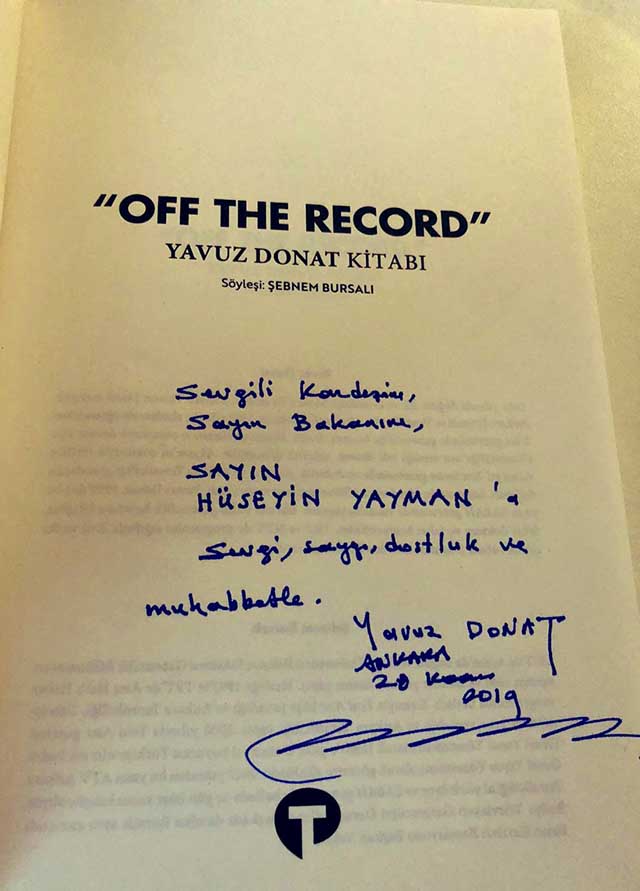 "OFF THE RECORD"
YAVUZ DONAT KİTABI
Söyleşi: ŞEBNEM BURSALI
Sevgili Kardeşim,
Sayın Bakanım,
SAYIN
HÜSEYİN YAYMAN'a
Sevgi, saygı, dostluk ve
muhabbetle.
Yavuz DONAT
ANKARA
28 Kasım
2019
T